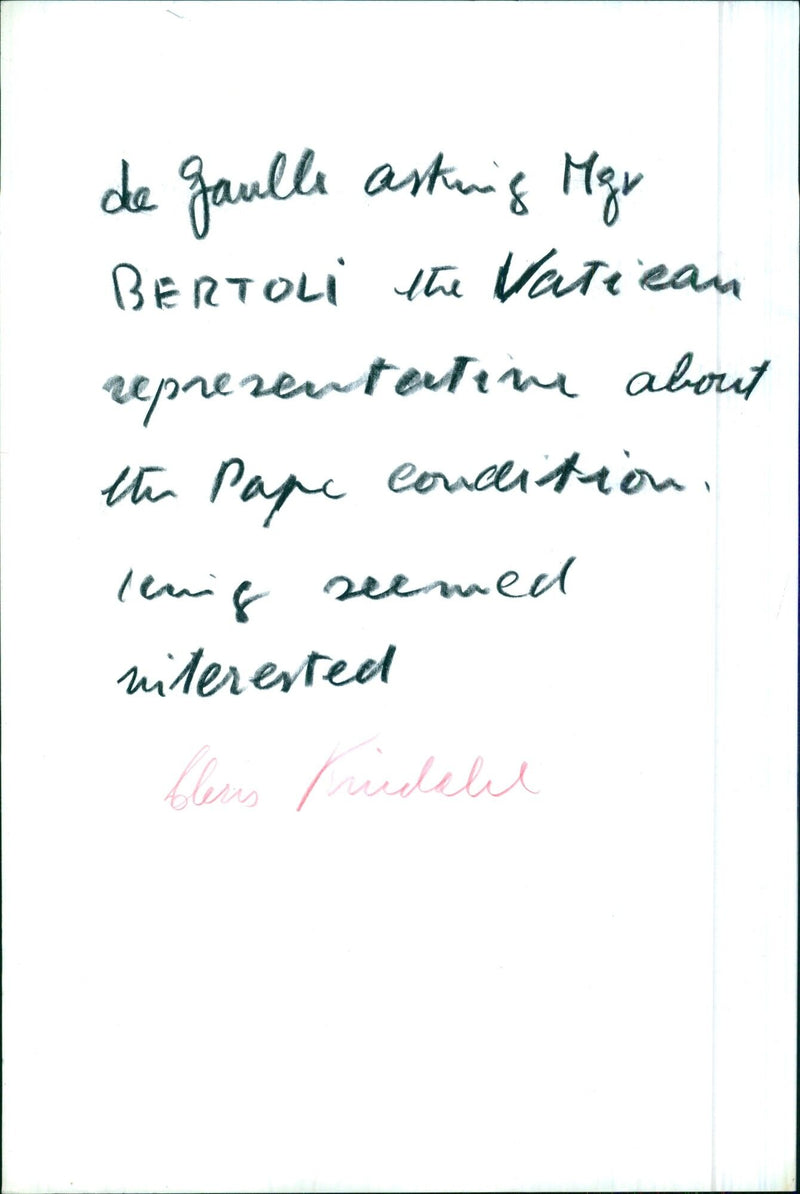 de Gaulle asking Mgr
BERTOLI the Vatican
representative about
the Pape condition.
King seemed
interested
Kindahl